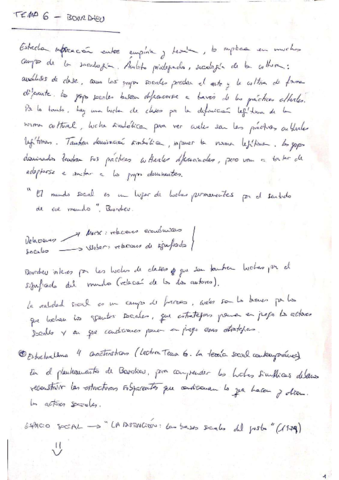 TEMA 6 – BOURDIEU
Estrecha articulación entre empiria y teoría, lo explica en muchos
campos de la sociología. Ámbito privilegiado, sociología de la cultura:
análisis de clase, como los grupos sociales el arte y la cultura de forma
diferente. Los grupos sociales buscan diferenciarse a través de las prácticas culturales.
Por lo tanto, hay una lucha de clases por la definición legítima de la
norma cultural, lucha simbólica para ver cuales son las prácticas culturales
legítimas. También dominación simbólica, imponer la norma legítima, los grupos
dominados tendrán sus prácticas culturales diferenciadas, pero van a tratar de
adaptarse e imitar a los grupos dominantes.
"El mundo social es un lugar de luchas permanentes por el sentido
de ese mundo". Bourdieu.
Relaciones sociales
Marx: relaciones económicas
Weber: relaciones de significado
Bourdieu interés por las luchas de clases y que son también luchas por el
significado del mundo (relación de los dos autores).
La realidad social es un campo de fuerzas, cuales son los bienes por los
que luchan los agentes sociales, que estrategias ponen en juego los actores
sociales y en que condiciones ponen en juego esas estrategias.
Estructuralismo y constructivismo (Lectura Tema 6. La teoría social contemporánea)
En el planteamiento de Bourdieu, para comprender las luchas simbólicas debemos
reconstruir las estructuras subyacentes que condicionan lo que hacen y dicen
los actores sociales.
ESPACIO SOCIAL → "LA DISTINCIÓN: Las bases sociales del gusto" (1979)